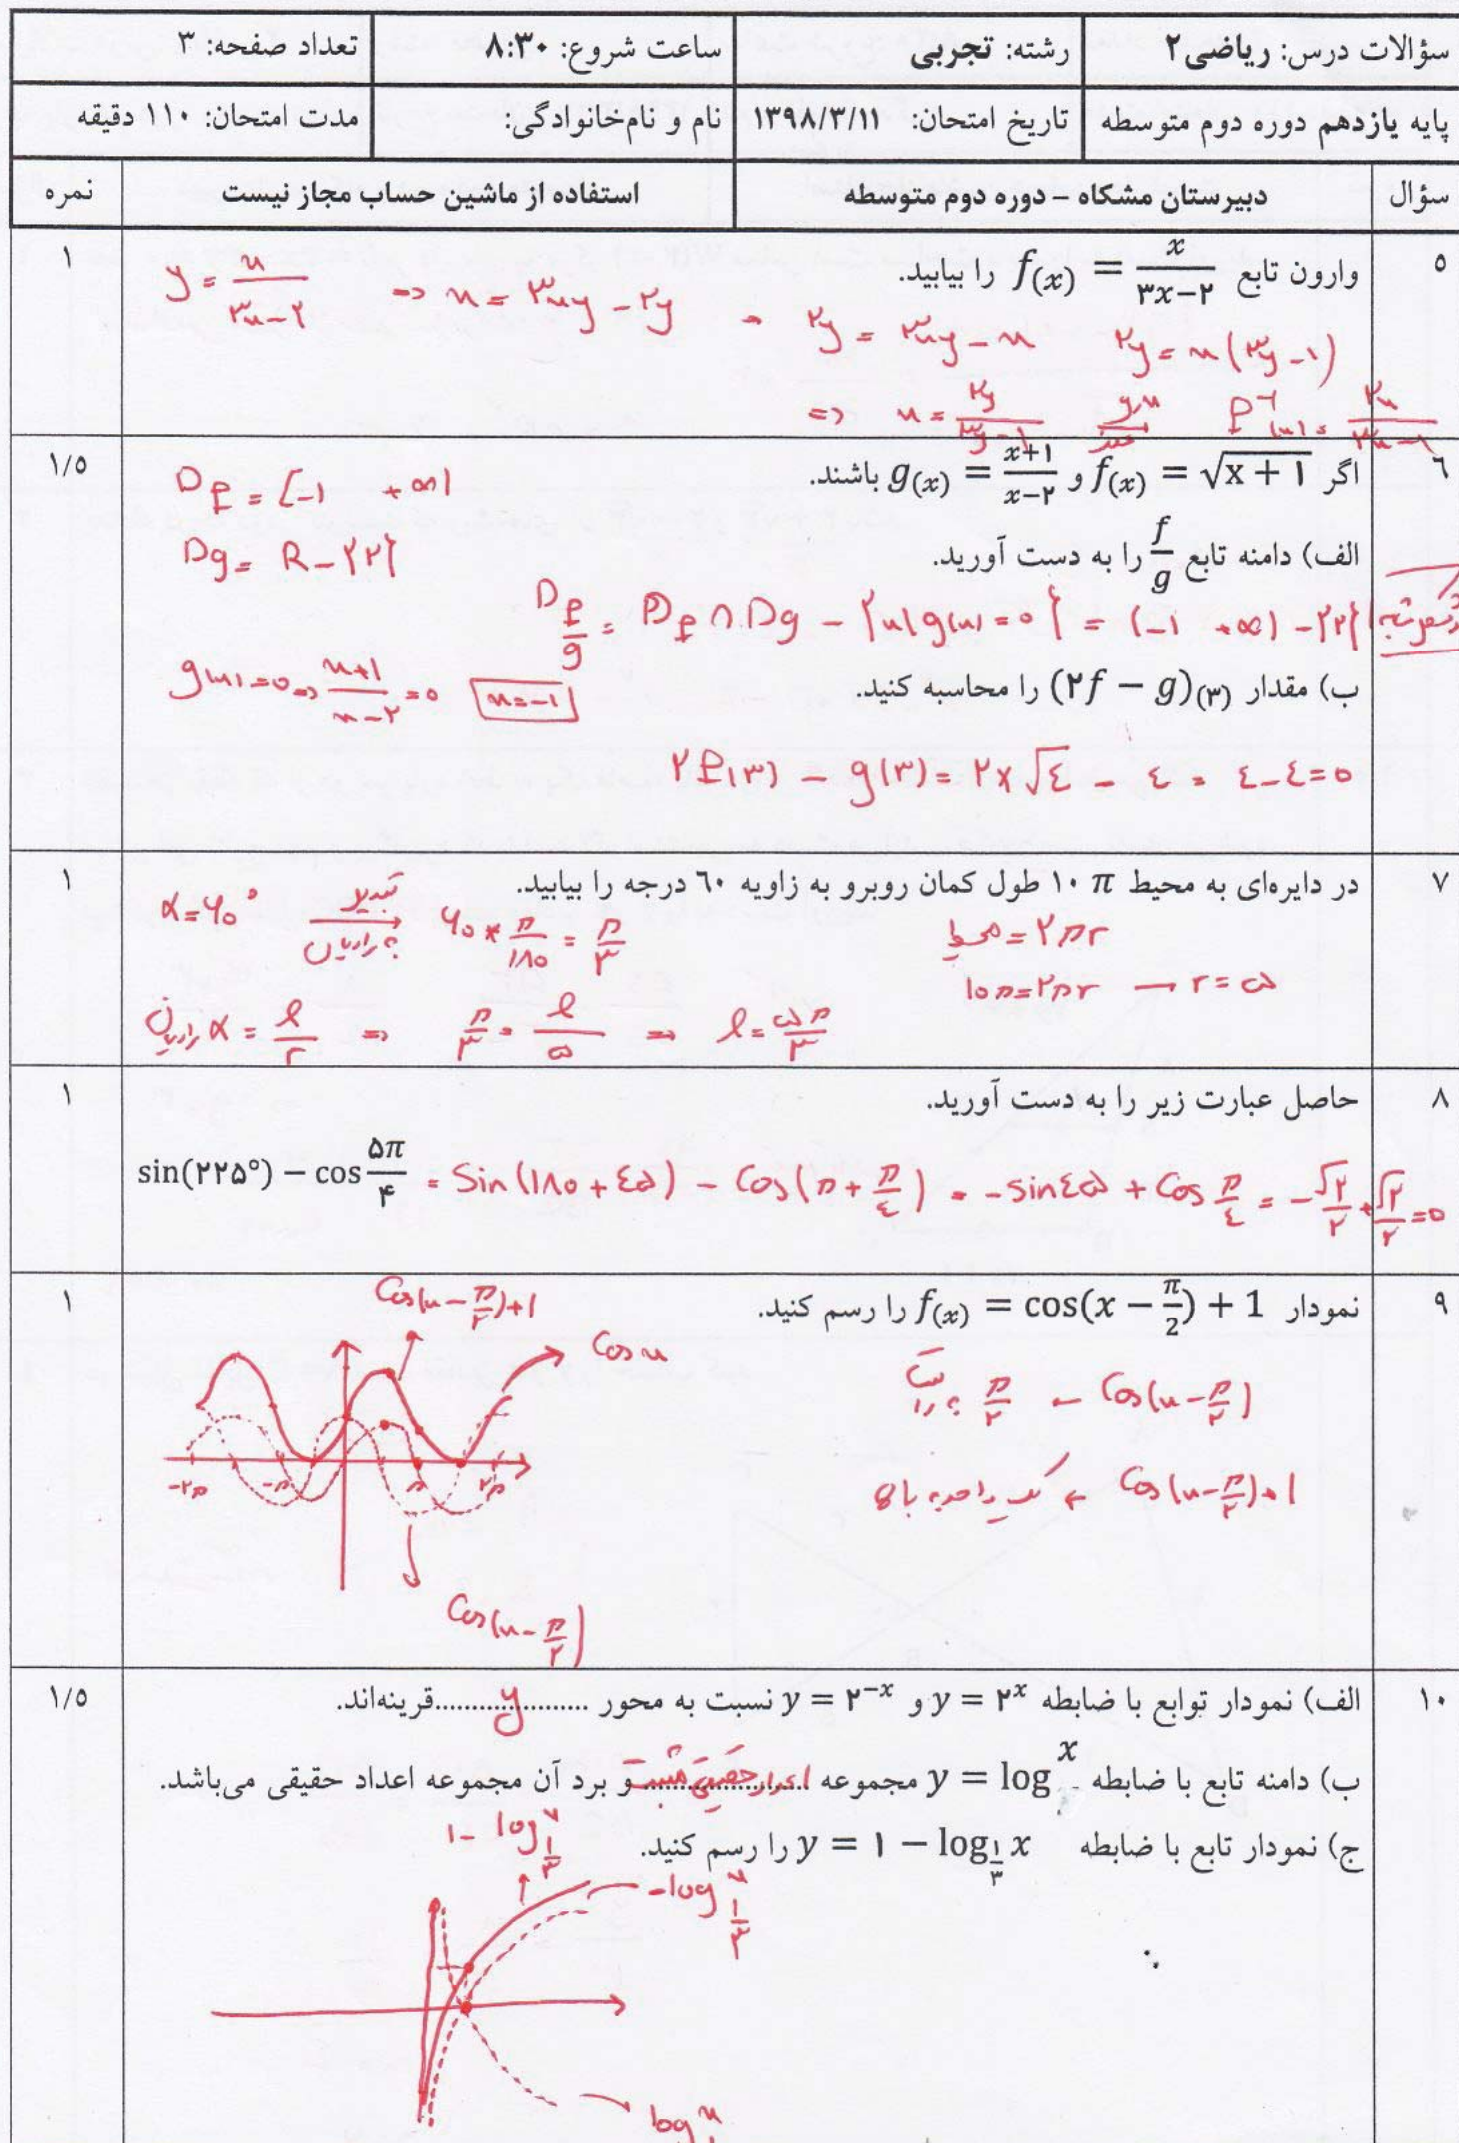 سؤالات درس: ریاضی۲ رشته: تجربی ساعت شروع: ۸:۳۰ تعداد صفحه: ۳
پایه یازدهم دوره دوم متوسطه تاریخ امتحان: ۱۳۹۸/۳/۱۱ نام و نام‌خانوادگی: مدت امتحان: ۱۱۰ دقیقه
سؤال دبیرستان مشکاه – دوره دوم متوسطه استفاده از ماشین حساب مجاز نیست نمره
۵ وارون تابع f(x) = x/(۳x−۲) را بیابید. ۱
y = x/(۳x−۲) => x = ۳xy − ۲y → ۲y = ۳xy − x ۲y = x(۳y −۱)
=> x = ۲y/(۳y−۱) f⁻¹(x) = ۲x/(۳x−۱)
۶ اگر f(x) = √(x+۱) و g(x) = (x+۱)/(x−۲) باشند. ۱/۵
Df = [−۱ +∞)
الف) دامنه تابع f/g را به دست آورید.
Dg = R − {۲}
D f/g = Df ∩ Dg − {x | g(x) = ۰} = (−۱ +∞) − {۲}
g(x) = ۰ => (x+۱)/(x−۲) = ۰ x=−۱
ب) مقدار (۲f − g)(۳) را محاسبه کنید.
۲f(۳) − g(۳) = ۲×√٤ − ٤ = ٤−٤=۰
۷ در دایره‌ای به محیط ۱۰ π طول کمان روبرو به زاویه ٦۰ درجه را بیابید. ۱
α=۶۰° تبدیل به رادیان ۶۰ * π/۱۸۰ = π/۳
محیط = ۲πr
۱۰π=۲πr → r = ۵
رادیان α = l/r => π/۳ = l/۵ => l = ۵π/۳
۸ حاصل عبارت زیر را به دست آورید. ۱
sin(۲۲۵°) − cos ۵π/۴ = Sin(۱۸۰+٤۵) − Cos(π + π/٤) = −sin٤۵ + Cos π/٤ = −√۲/۲ + √۲/۲ =۰
۹ نمودار f(x) = cos(x − π/2) + 1 را رسم کنید. ۱
Cos(x − π/۲)+۱
Cos x
π/۲ به راست ← Cos(x−π/۲)
یک واحد به بالا ← Cos(x−π/۲)+۱
−۲π −π π ۲π
Cos(x−π/۲)
۱۰ الف) نمودار توابع با ضابطه y = ۲^x و y = ۲^−x نسبت به محور .......y.......قرینه‌اند. ۱/۵
ب) دامنه تابع با ضابطه y = log x مجموعه اعداد حقیقی مثبت و برد آن مجموعه اعداد حقیقی می‌باشد.
ج) نمودار تابع با ضابطه y = ۱ − log_۱/۳ x را رسم کنید.
۱− log_۱/۳ x
−log_۱/۳ x
log x